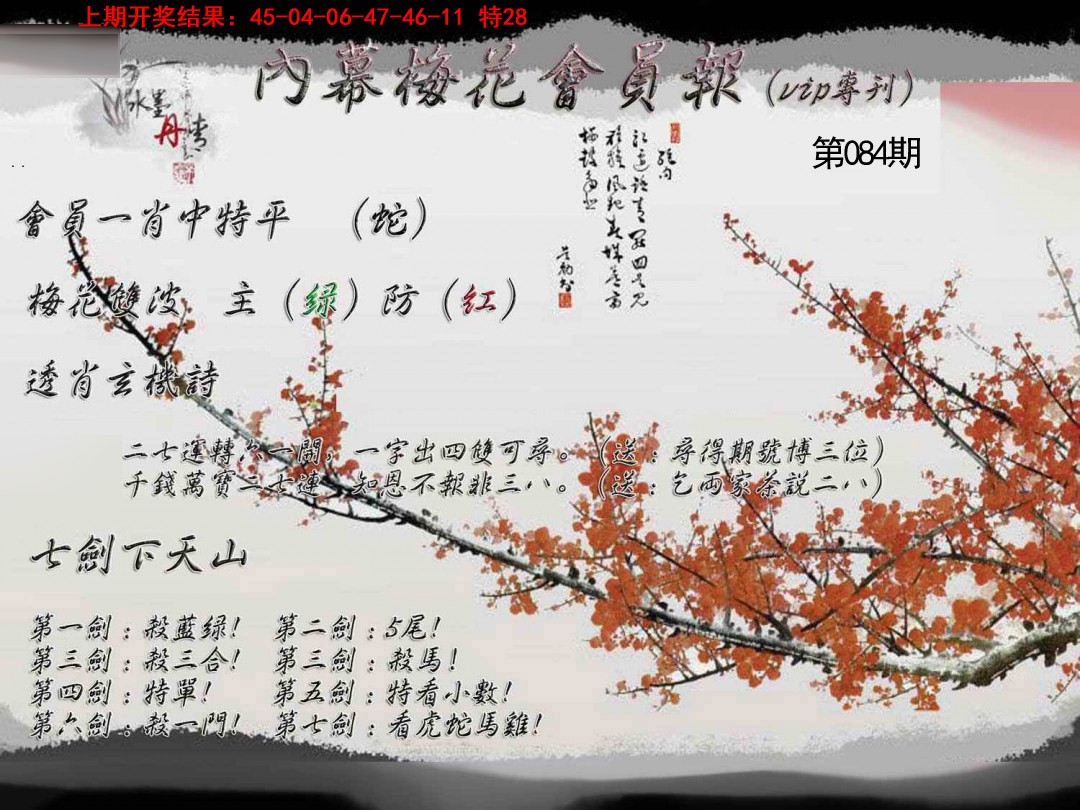 上期开奖结果：45-04-06-47-46-11 特28
內幕梅花會員報（vip專刊）
水墨
丹青
第084期
會員一肖中特平 （蛇）
梅花雙波 主（绿）防（红）
透肖玄機詩
二七運轉六一開，一字出四雙可尋。（送：尋得期號博三位）
千錢萬寶二七連，知恩不報非三八。（送：乞両家茶説二八）
七劍下天山
第一劍：殺藍绿！ 第二劍：5尾！
第三劍：殺三合！ 第三劍：殺馬！
第四劍：特單！ 第五劍：特看小數！
第六劍：殺一門！ 第七劍：看虎蛇馬雞！